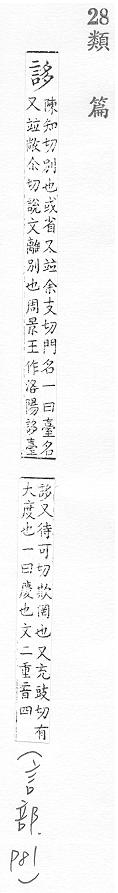 28 類篇
誃
陳知切別也或省又竝余支切門名一曰臺名
又竝敞尒切說文離別也周景王作洛陽誃臺
誃又待可切欺罔也又充豉切有
大度也一曰慶也文二重音四
(言部. P81)